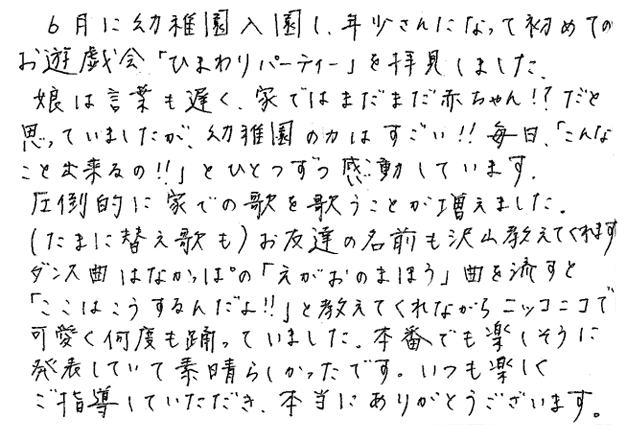 ６月に幼稚園入園し、年少さんになって初めての
お遊戯会「ひまわりパーティー」を拝見しました。
娘は言葉も遅く、家ではまだまだ赤ちゃん!?だと
思っていましたが、幼稚園の力はすごい!!毎日、「こんな
こと出来るの!!」とひとつずつ感動しています。
圧倒的に家での歌を歌うことが増えました。
(たまに替え歌も)お友達の名前も沢山教えてくれます
ダンス曲はなかっぱの「えがおのまほう」曲を流すと
「ここはこうするんだよ!!」と教えてくれながらニッコニコで
可愛く何度も踊っていました。本番でも楽しそうに
発表していて素晴らしかったです。いつも楽しく
ご指導していただき、本当にありがとうございます。